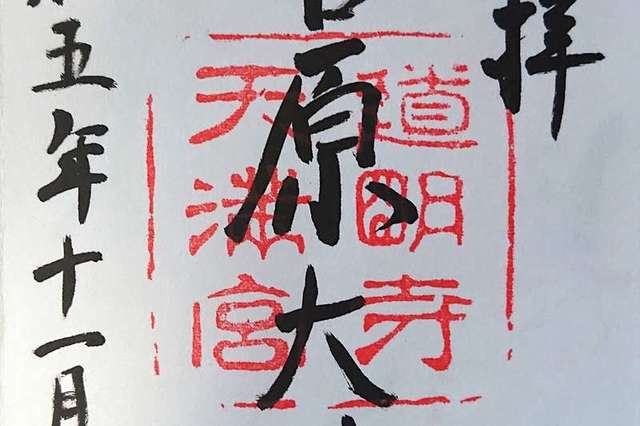 拝
原大
道明寺
天満宮
五年十一月